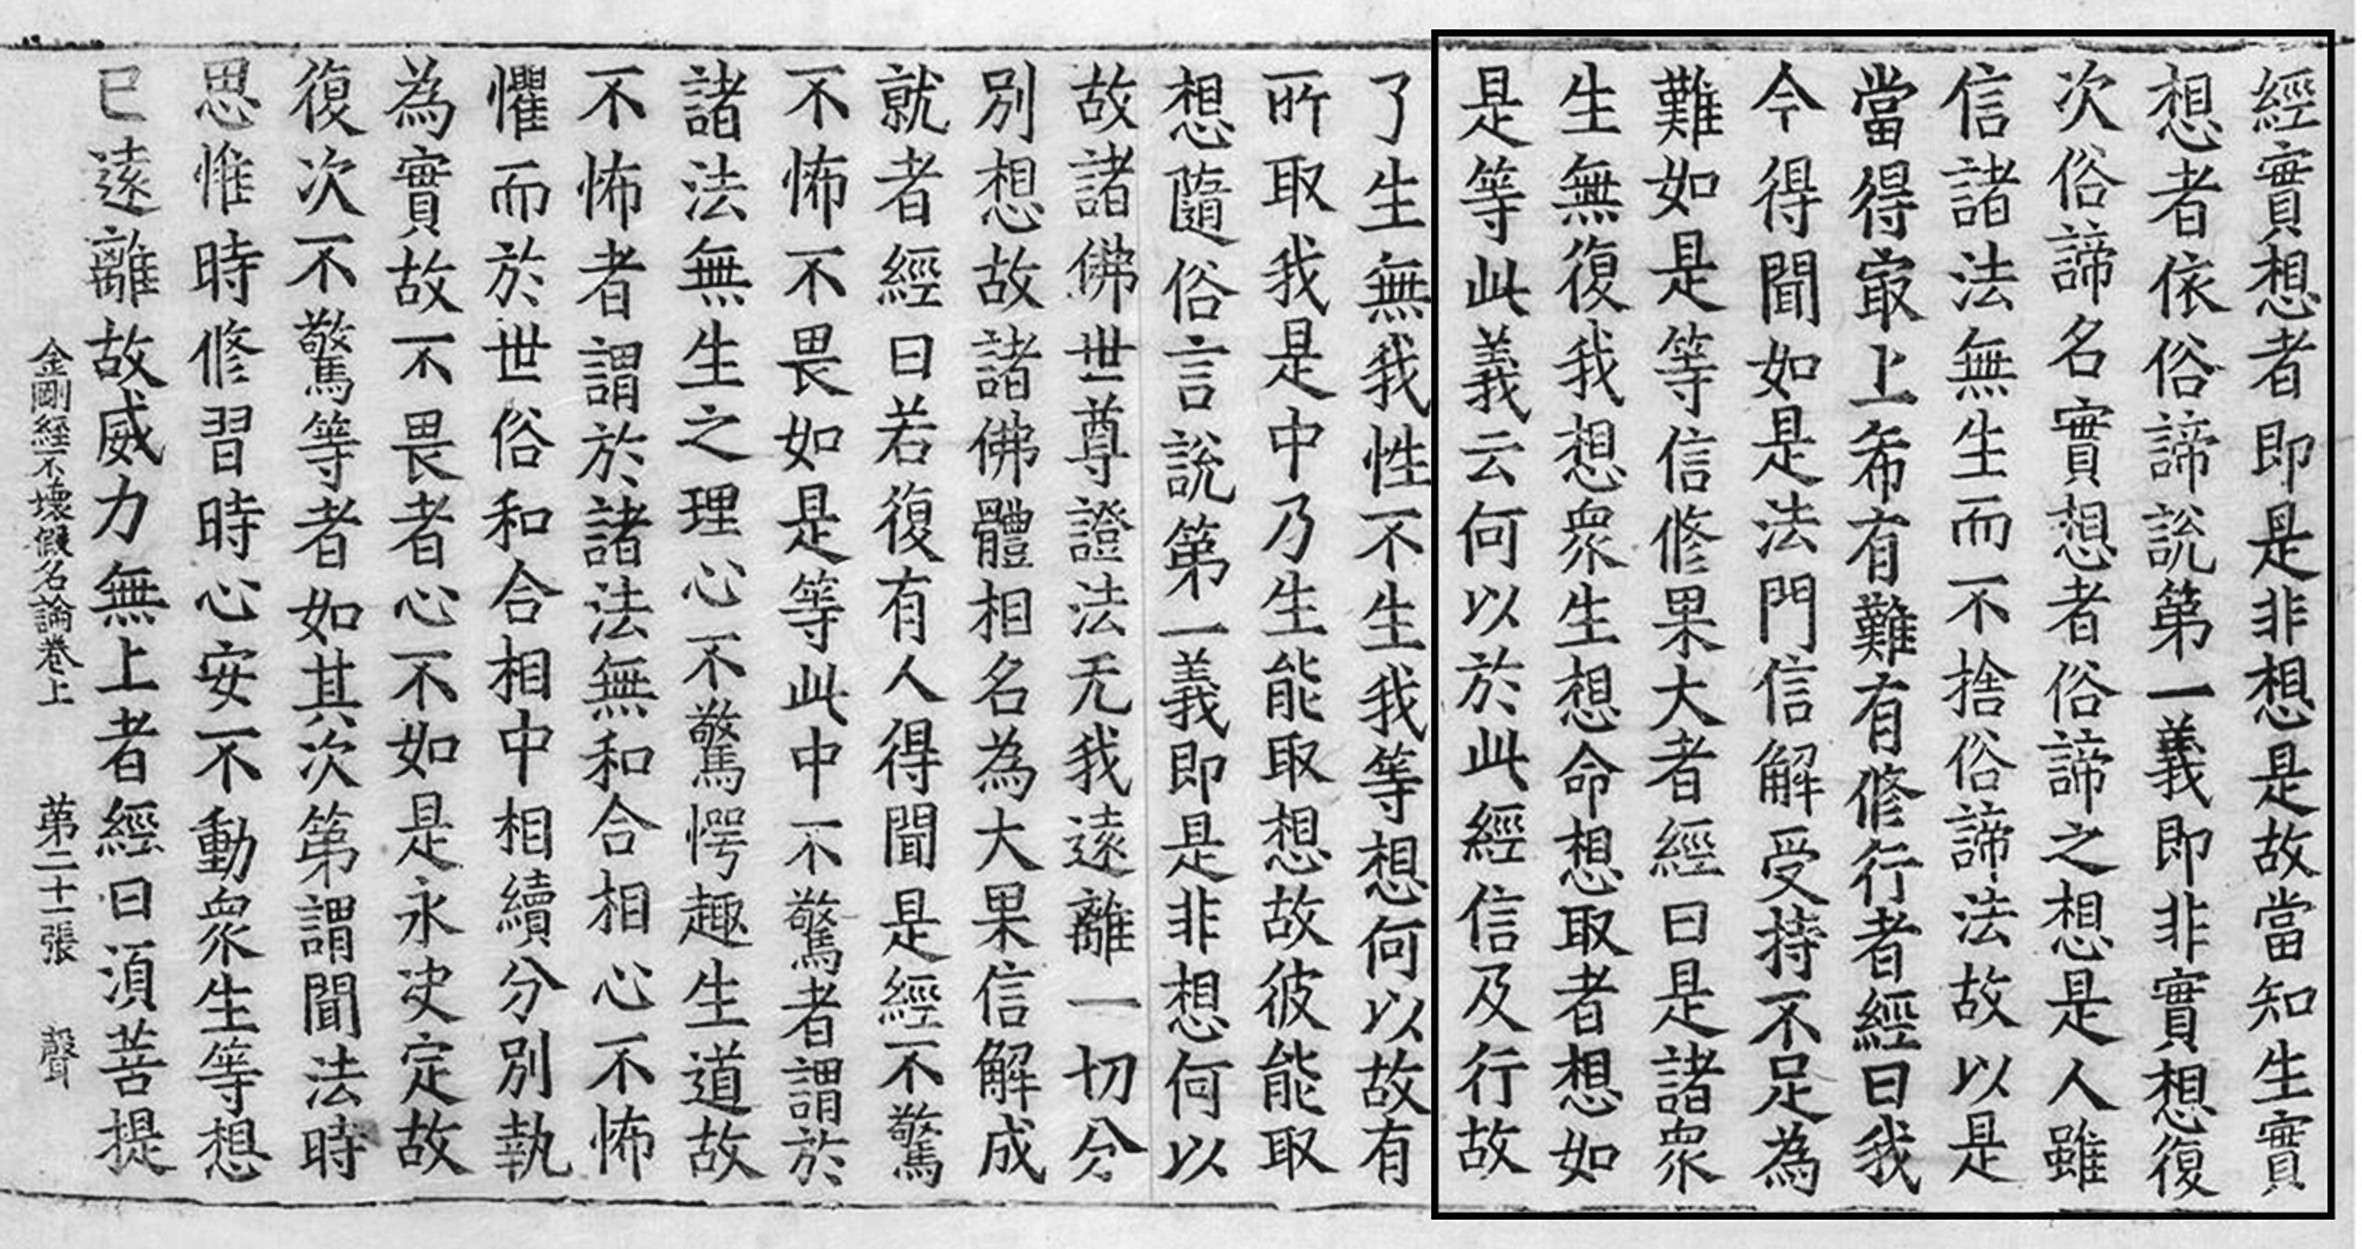 經實想者即是非想是故當知生實
想者依俗諦說第一義即非實想復
次俗諦名實想者俗諦之想是人雖
信諸法無生而不捨俗諦法故以是
當得㝡上希有難有修行者經曰我
今得聞如是法門信解受持不足為
難如是等信修果大者經曰是諸衆
生無復我想衆生想命想取者想如
是等此義云何以於此經信及行故
了生無我性不生我等想何以故有
所取我是中乃生能取想故彼能取
想隨俗言說第一義即是非想何以
故諸佛世尊證法无我遠離一切分
別想故諸佛體相名為大果信解成
就者經曰若復有人得聞是經不驚
不怖不畏如是等此中不驚者謂於
諸法無生之理心不驚愕趣生道故
不怖者謂於諸法無和合相心不怖
懼而於世俗和合相中相續分別執
為實故不畏者心不如是永决定故
復次不驚等者如其次第謂聞法時
思惟時修習時心安不動衆生等想
已遠離故威力無上者經曰湏菩提
金剛經不壞假名論卷上 苐二十一張 聲